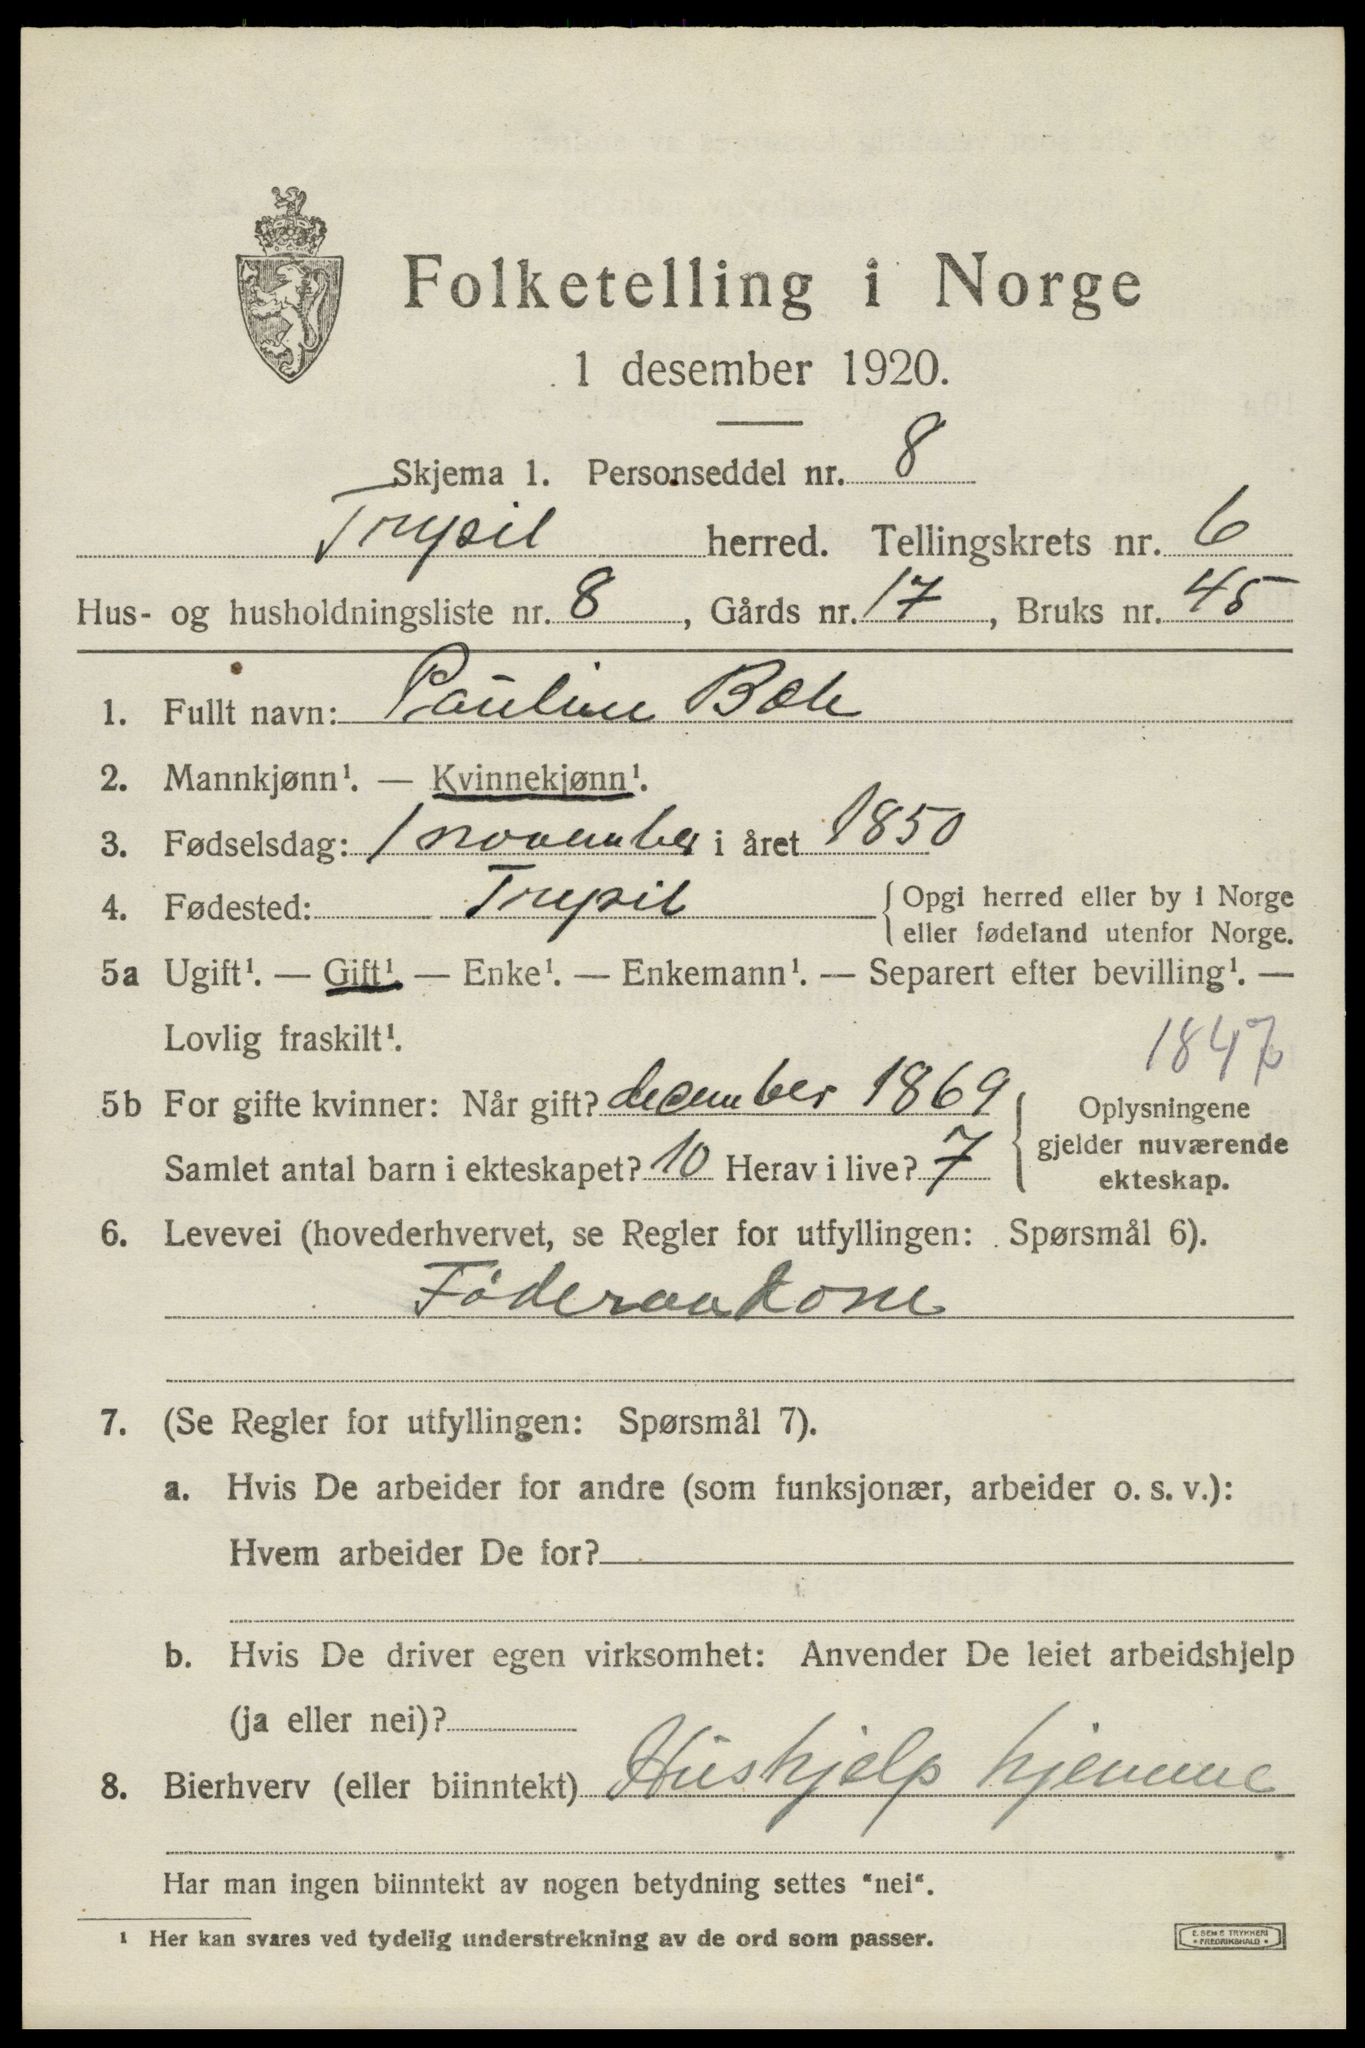 Folketelling i Norge
1 desember 1920.
Skjema 1. Personseddel nr. 8
Trysil herred. Tellingskrets nr. 6
Hus- og husholdningsliste nr. 8, Gårds nr. 17, Bruks nr. 45
1. Fullt navn: Pauline Bæk
2. Mannkjønn¹. — Kvinnekjønn¹.
3. Fødselsdag: 1 november i året 1850
4. Fødested: Trysil {Opgi herred eller by i Norge
eller fødeland utenfor Norge.
5a Ugift¹. — Gift¹. — Enke¹. — Enkemann¹. — Separert efter bevilling¹. —
Lovlig fraskilt¹.
1847
5b For gifte kvinner: Når gift? december 1869
Samlet antal barn i ekteskapet? 10 Herav i live? 7
{Oplysningene
gjelder nuværende
ekteskap.
6. Levevei (hovederhvervet, se Regler for utfyllingen: Spørsmål 6).
Føderaadkone
7. (Se Regler for utfyllingen: Spørsmål 7).
a. Hvis De arbeider for andre (som funksjonær, arbeider o. s. v.):
Hvem arbeider De for?
b. Hvis De driver egen virksomhet: Anvender De leiet arbeidshjelp
(ja eller nei)?
8. Bierhverv (eller biinntekt) Hushjelp hjemme
Har man ingen biinntekt av nogen betydning settes "nei".
¹ Her kan svares ved tydelig understrekning av de ord som passer.
E. SEMS TRYKKERI
* FREDRIKSHALD *